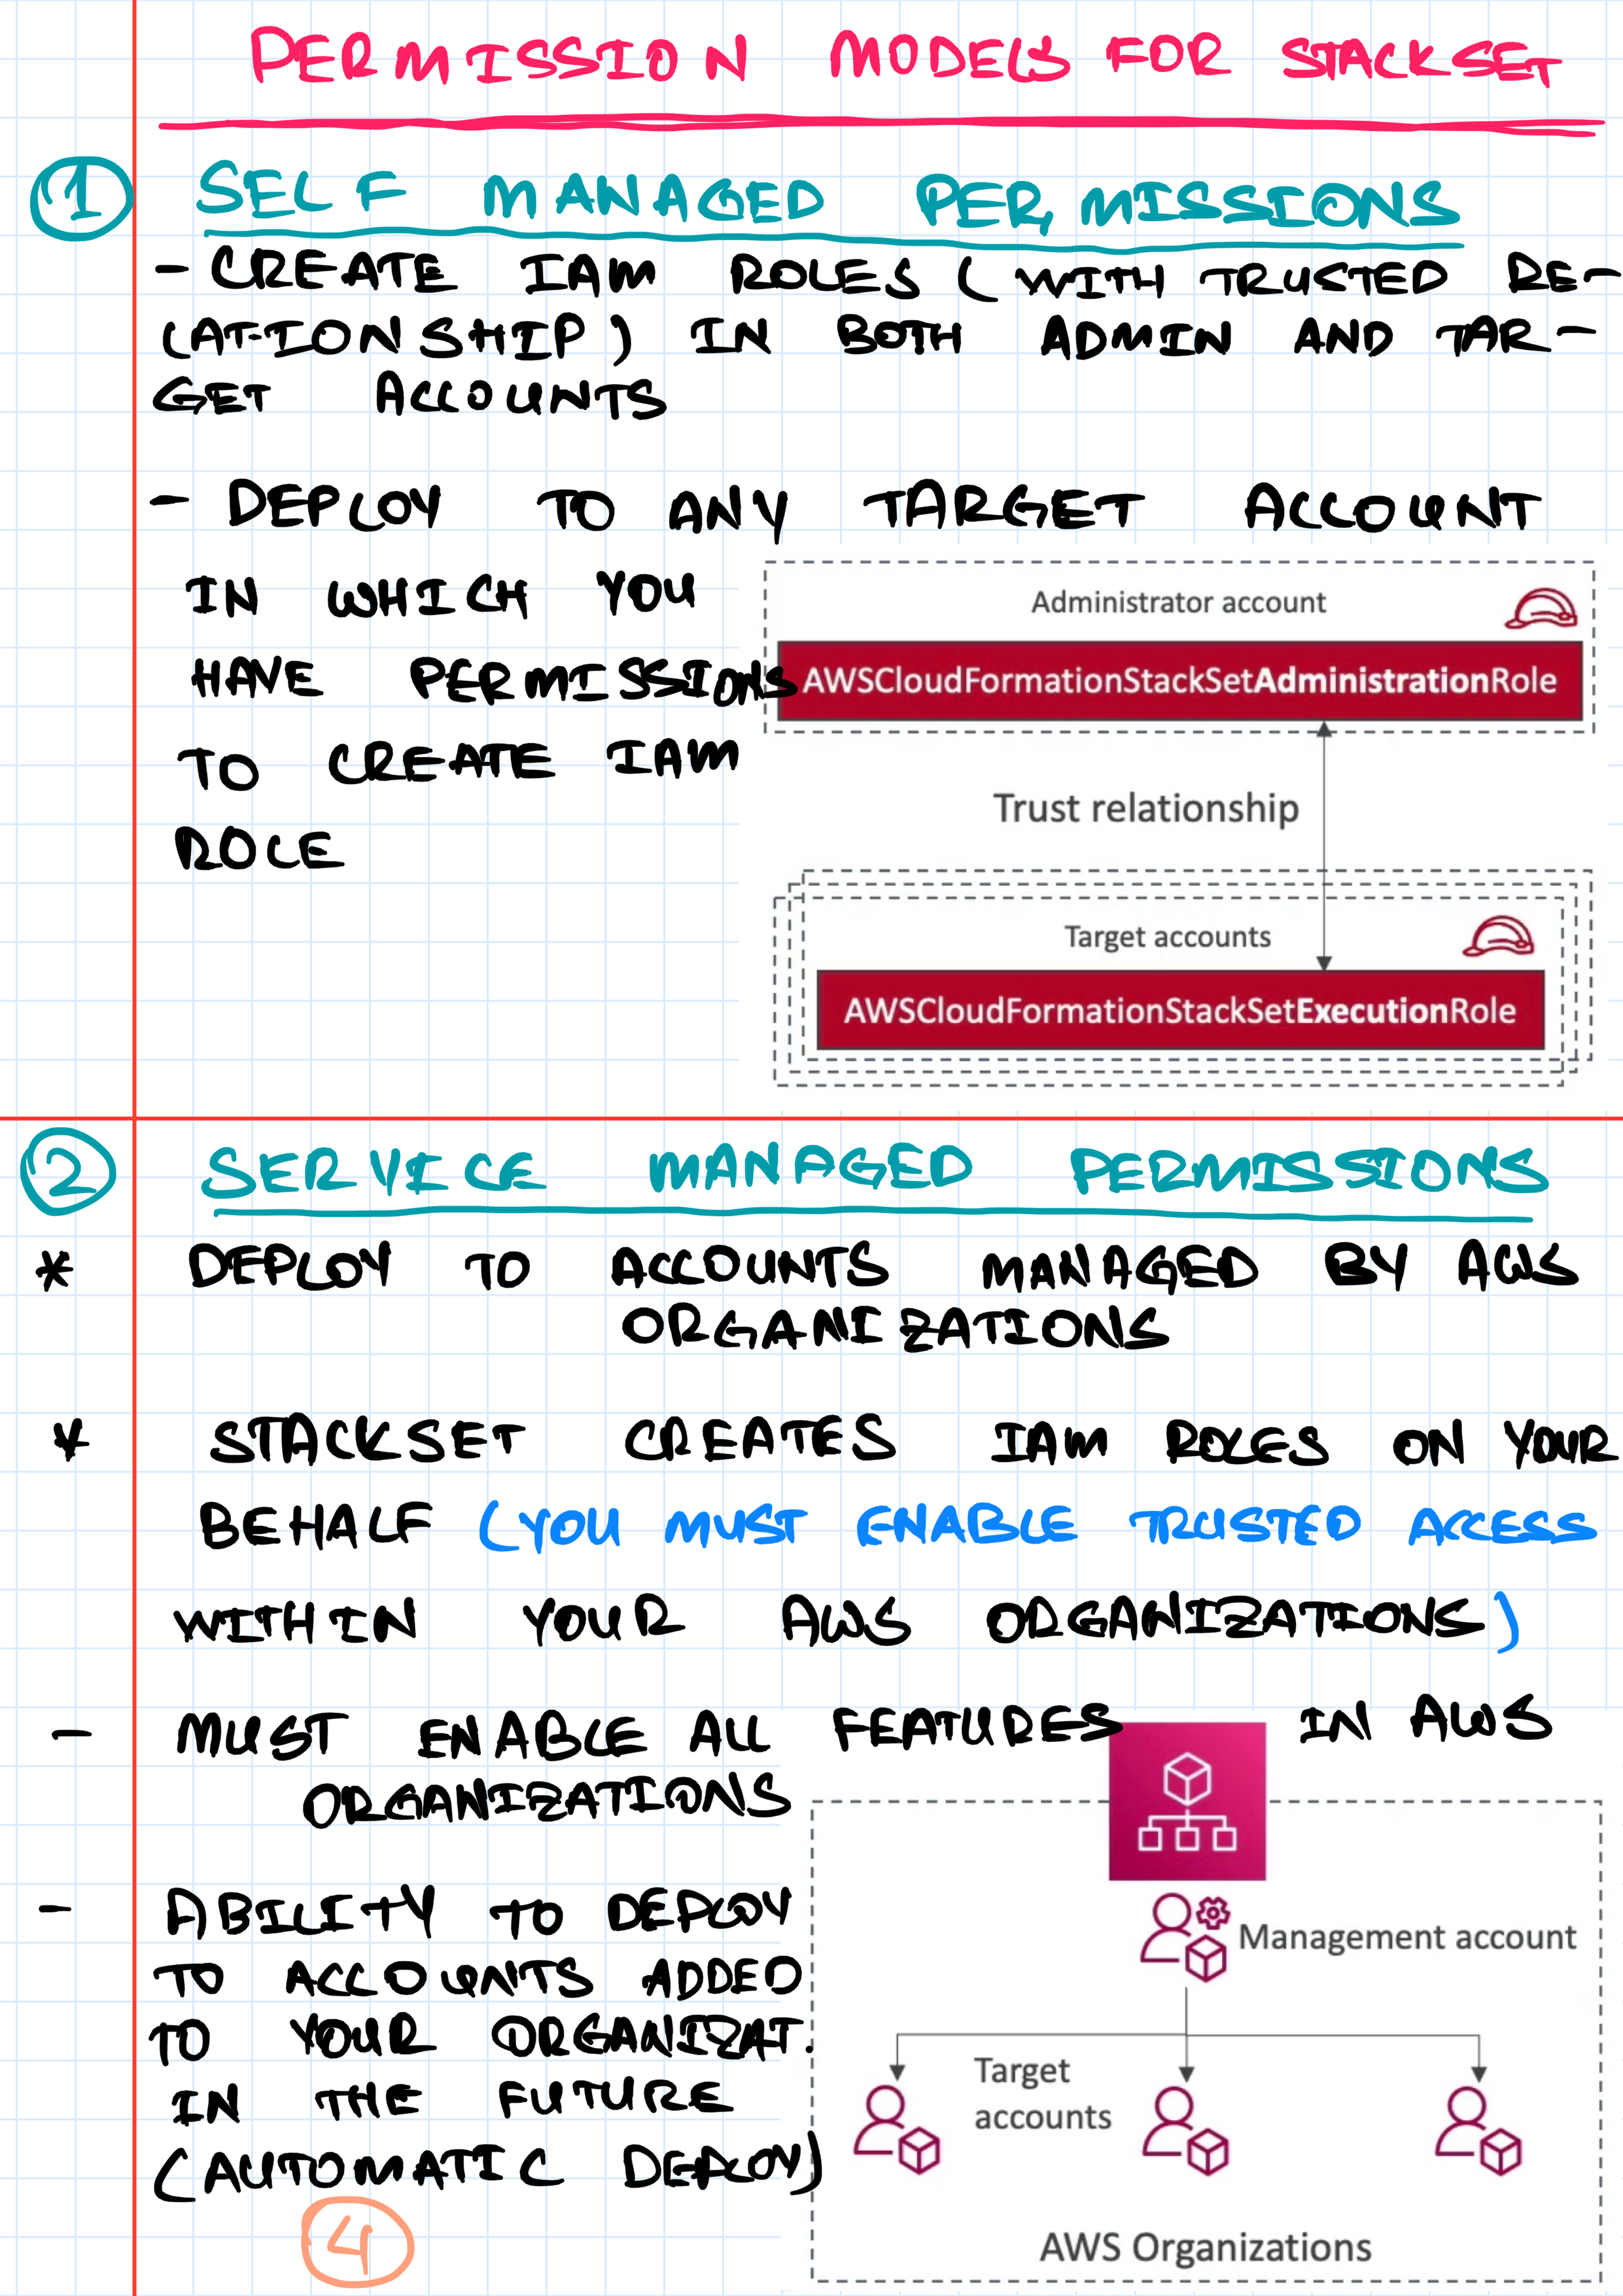 PERMISSION MODELS FOR STACKSET
1 SELF MANAGED PERMISSIONS
- CREATE IAM ROLES (WITH TRUSTED RE-
LATIONSHIP) IN BOTH ADMIN AND TAR-
GET ACCOUNTS
- DEPLOY TO ANY TARGET ACCOUNT
IN WHICH YOU
HAVE PERMISSIONS
TO CREATE IAM
ROLE
Administrator account
AWSCloudFormationStackSetAdministrationRole
Trust relationship
Target accounts
AWSCloudFormationStackSetExecutionRole
2 SERVICE MANAGED PERMISSIONS
* DEPLOY TO ACCOUNTS MANAGED BY AWS
ORGANIZATIONS
* STACKSET CREATES IAM ROLES ON YOUR
BEHALF (YOU MUST ENABLE TRUSTED ACCESS
WITHIN YOUR AWS ORGANIZATIONS)
- MUST ENABLE ALL FEATURES IN AWS
ORGANIZATIONS
- ABILITY TO DEPLOY
TO ACCOUNTS ADDED
TO YOUR ORGANIZAT.
IN THE FUTURE
(AUTOMATIC DEPLOY)
4
Management account
Target
accounts
AWS Organizations